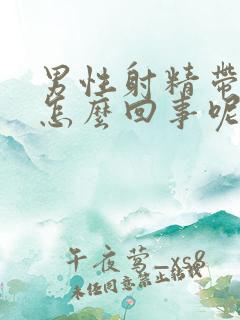 男性射精带
怎麽回事呢
午夜莺_xs8
未经同意禁止转载